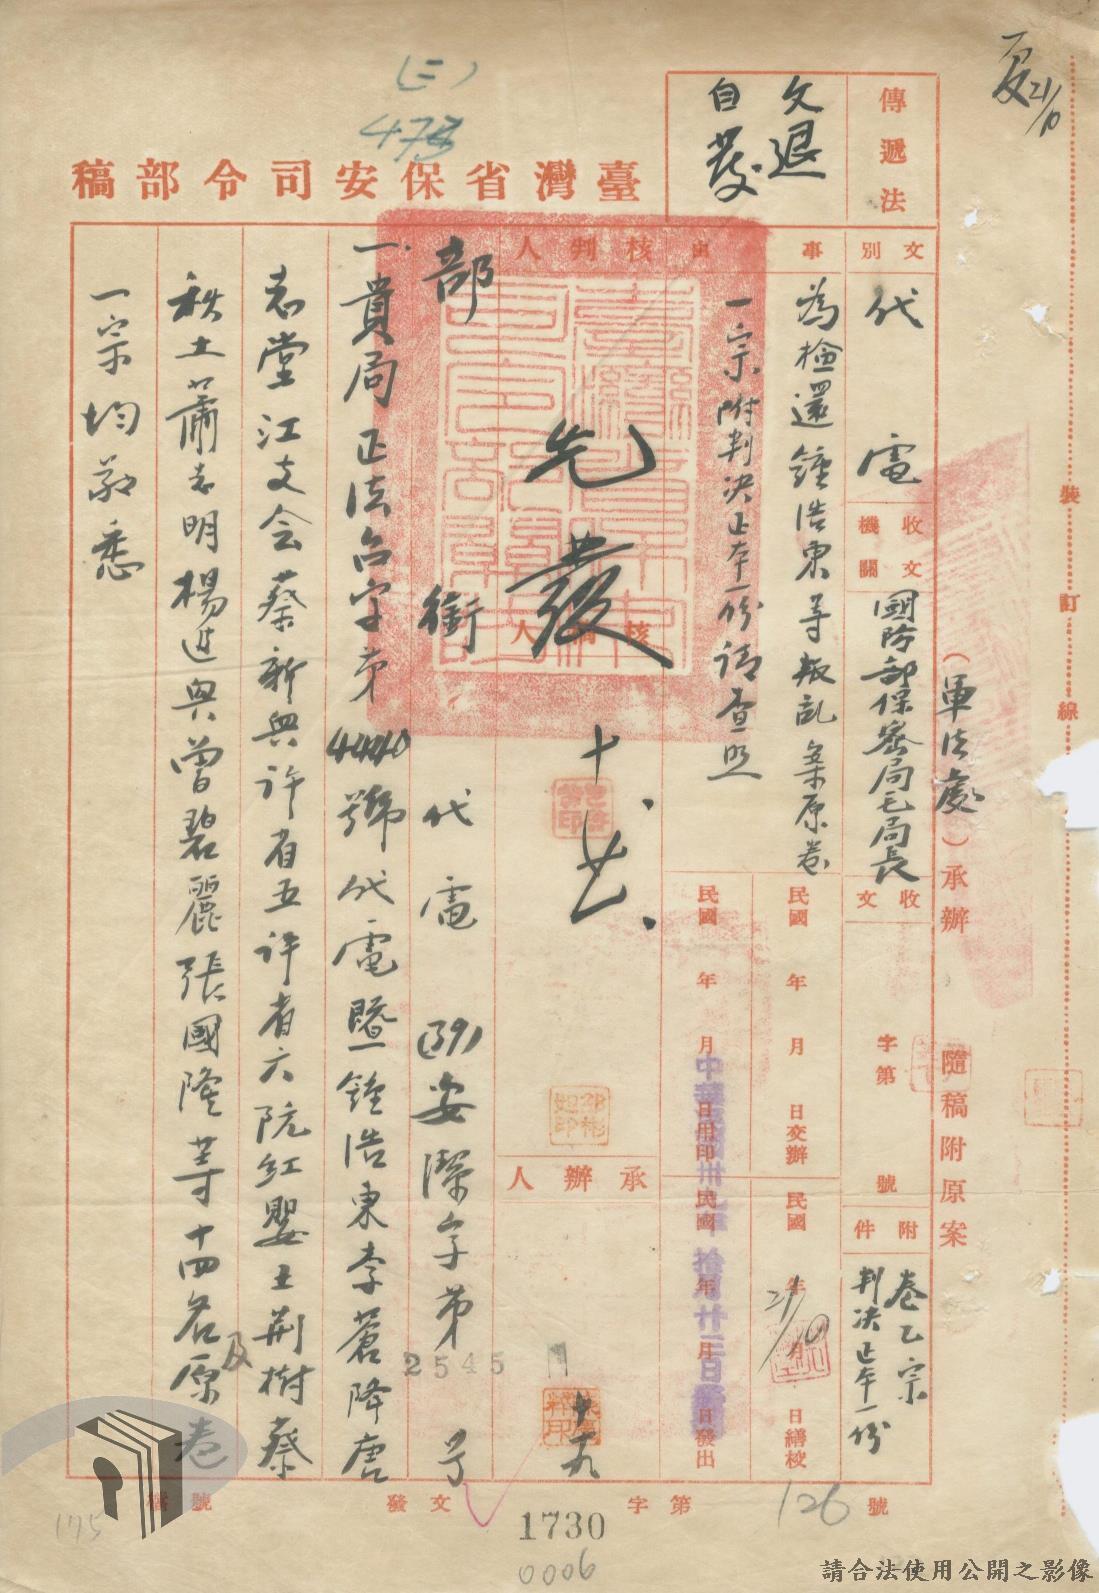 夏 21/10
(三)
473
臺灣省保安司令部稿
傳遞法
文退
自發
文別
代電
收文機關
國防部保密局毛局長
收文
字第
號
附件
卷乙宗
判決正本一份
事由
為檢還鍾浩東等叛亂案原卷
一宗附判決正本一份請查照
民國 年 月 日交辦
民國 年 月 日繕校
21/10
民國 年 月 日用印
民國 年 月 日發出
核判人
先發
十、廿、
核稿人
承辦人
十九
部銜 代電 (39)安潔字第 號
2545
一、貴局正法台字第4440號代電暨鍾浩東李蒼降唐
志堂江支会蔡新興許省五許省六阮紅嬰王荊樹蔡
秩土蕭志明楊进興曾碧麗張國隆等十四名及原卷
一宗均敬悉
(軍法處)承辦
隨稿附原案
裝訂線
檔號
發文
字第
126
號
175
1730
0006
請合法使用公開之影像